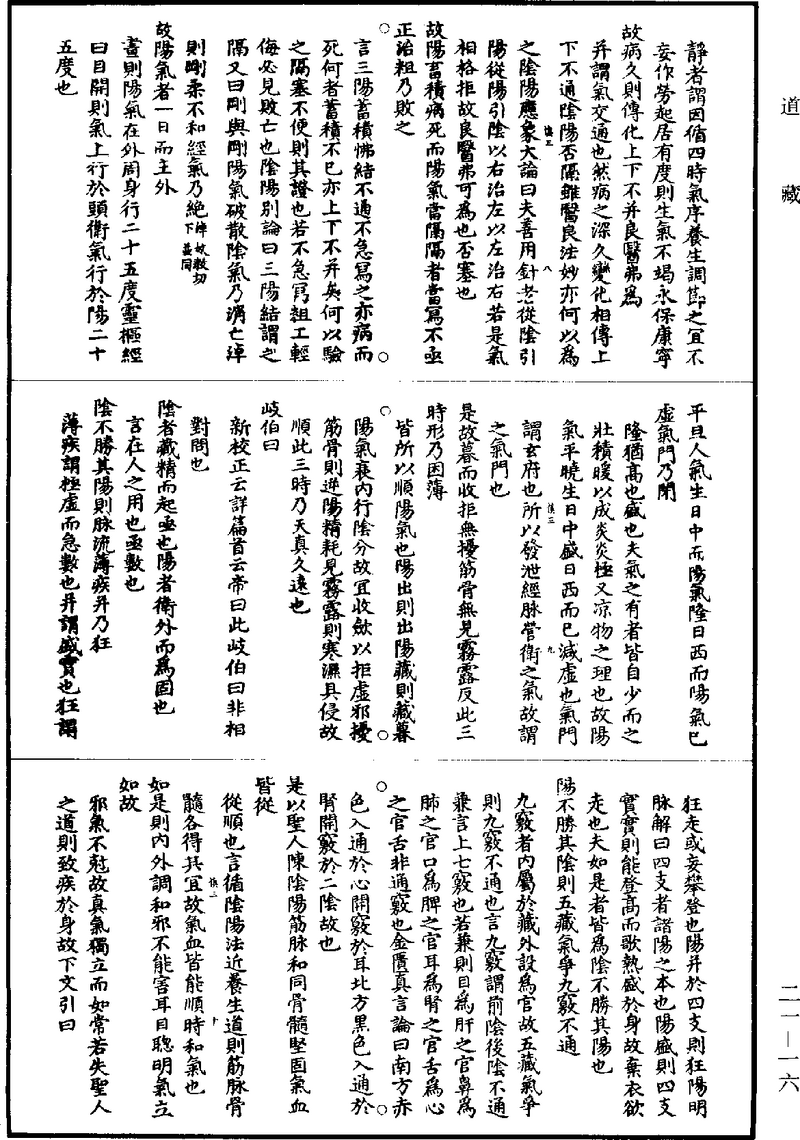 道藏
靜者謂因循四時氣序養生調節之宜不
妄作勞起居有度則生氣不竭永保康寧
故病久則傳化上下不并良醫弗為
并謂氣交通也然病之深久變化相傳上
下不通陰陽否隔雖醫良法妙亦何以為
慎三 八
之陰陽應象大論曰夫善用針者從陰引
陽從陽引陰以右治左以左治右若是氣
相格拒故良醫弗可為也否塞也
故陽畜積病死而陽氣當隔隔者當寫不亟
正治粗乃敗之
言三陽蓄積怫結不通不急寫之亦病而
死何者蓄積不已亦上下不并矣何以驗
之隔塞不便則其證也若不急寫粗工輕
侮必見敗亡也陰陽別論曰三陽結謂之
隔又曰剛與剛陽氣破散陰氣乃消亡淖
則剛柔不和經氣乃絕淖奴教切下並同
故陽氣者一日而主外
晝則陽氣在外周身行二十五度靈樞經
曰目開則氣上行於頭衛氣行於陽二十
五度也
平旦人氣生日中而陽氣隆日西而陽氣已
虛氣門乃閉
隆猶高也盛也夫氣之有者皆自少而之
壯積暖以成炎炎極又凉物之理也故陽
氣平曉生日中盛日西而已減虛也氣門
慎三 九
謂玄府也所以發泄經脉營衛之氣故謂
之氣門也
是故暮而收拒無擾筋骨無見霧露反此三
時形乃困薄
皆所以順陽氣也陽出則出陽藏則藏暮
陽氣衰內行陰分故宜收斂以拒虛邪擾
筋骨則逆陽精耗見霧露則寒濕具侵故
順此三時乃天真久遠也
岐伯曰
新校正云詳篇首云帝曰此岐伯曰非相
對問也
陰者藏精而起亟也陽者衛外而為固也
言在人之用也亟數也
陰不勝其陽則脉流薄疾并乃狂
薄疾謂極虛而急數也并謂盛實也狂謂
狂走或妄攀登也陽并於四支則狂陽明
脉解曰四支者諸陽之本也陽盛則四支
實實則能登高而歌熱盛於身故棄衣欲
走也夫如是者皆為陰不勝其陽也
陽不勝其陰則五藏氣爭九竅不通
九竅者內屬於藏外設為官故五藏氣爭
則九竅不通也言九竅謂前陰後陰不通
兼言上七竅也若兼則目為肝之官鼻為
肺之官口為脾之官耳為腎之官舌為心
之官舌非通竅也金匱真言論曰南方赤
色入通於心開竅於耳北方黑色入通於
腎開竅於二陰故也
是以聖人陳陰陽筋脉和同骨髓堅固氣血
皆從
從順也言循陰陽法近養生道則筋脉骨
慎三 十
髓各得其宜故氣血皆能順時和氣也
如是則內外調和邪不能害耳目聰明氣立
如故
邪氣不尅故真氣獨立而如常若失聖人
之道則致疾於身故下文引曰
二一—一六